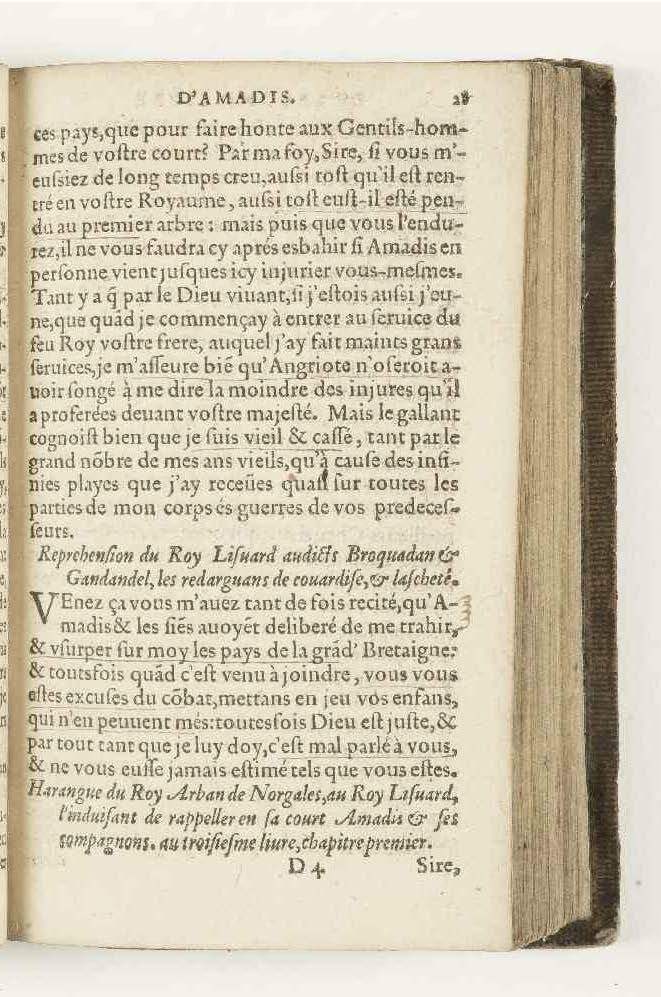 D'AMADIS. 28
ces pays,que pour faire honte aux Gentils-hom-
mes de voſtre court? Par ma foy,Sire, ſi vous m'-
euſsiez de long temps creu,auſsi toſt qu'il eſt ren-
tré en voſtre Royaume, auſsi toſt euſt-il eſté pen-
du au premier arbre : mais puis que vous l'endu-
rez,il ne vous faudra cy aprés esbahir ſi Amadis en
perſonne vient juſques icy injurier vous-meſmes.
Tant y a q̃ par le Dieu viuant,ſi j'eſtois auſsi j'eu-
ne,que quãd je commençay à entrer au ſeruice du
feu Roy voſtre frere, auquel j'ay fait maints grans
ſeruices,je m'aſſeure biẽ qu'Angriote n'oſeroit a-
uoir ſongé à me dire la moindre des injures qu'il
a proferées deuant voſtre majeſté. Mais le gallant
cognoiſt bien que je ſuis vieil & caſſé, tant par le
grand nõbre de mes ans vieils,qu'à cauſe des infi-
nies playes que j'ay receües quaſi ſur toutes les
parties de mon corps és guerres de vos predeceſ-
ſeurs.
Reprehenſion du Roy Liſuard audicts Broquadan &
Gandandel, les redarguans de couardiſe,& laſcheté.
VEnez ça vous m'auez tant de fois recité,qu'A-
madis & les ſiẽs auoyẽt deliberé de me trahir,
& vſurper ſur moy les pays de la grãd' Bretaigne:
& toutsfois quãd c'eſt venu à joindre, vous vous
eſtes excuſes du cõbat,mettans en jeu vos enfans,
qui n'en peuuent més:toutesfois Dieu eſt juſte,&
par tout tant que je luy doy,c'eſt mal parlé à vous,
& ne vous euſſe jamais eſtimé tels que vous eſtes.
Harangue du Roy Arban de Norgales,au Roy Liſuard,
l'induiſant de rappeller en ſa court Amadis & ſes
compagnons. au troiſieſme liure,chapitre premier.
D 4. Sire,